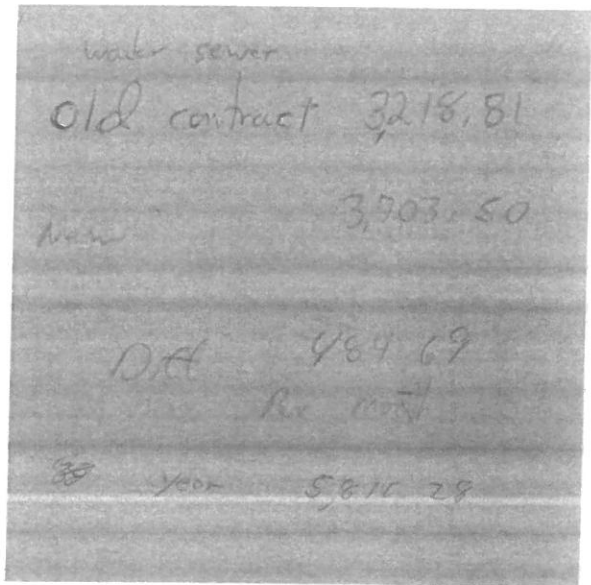 water sewer
old contract 3,218.81
3,703.50
New
Diff 484 69
Per month
year 5,816 28